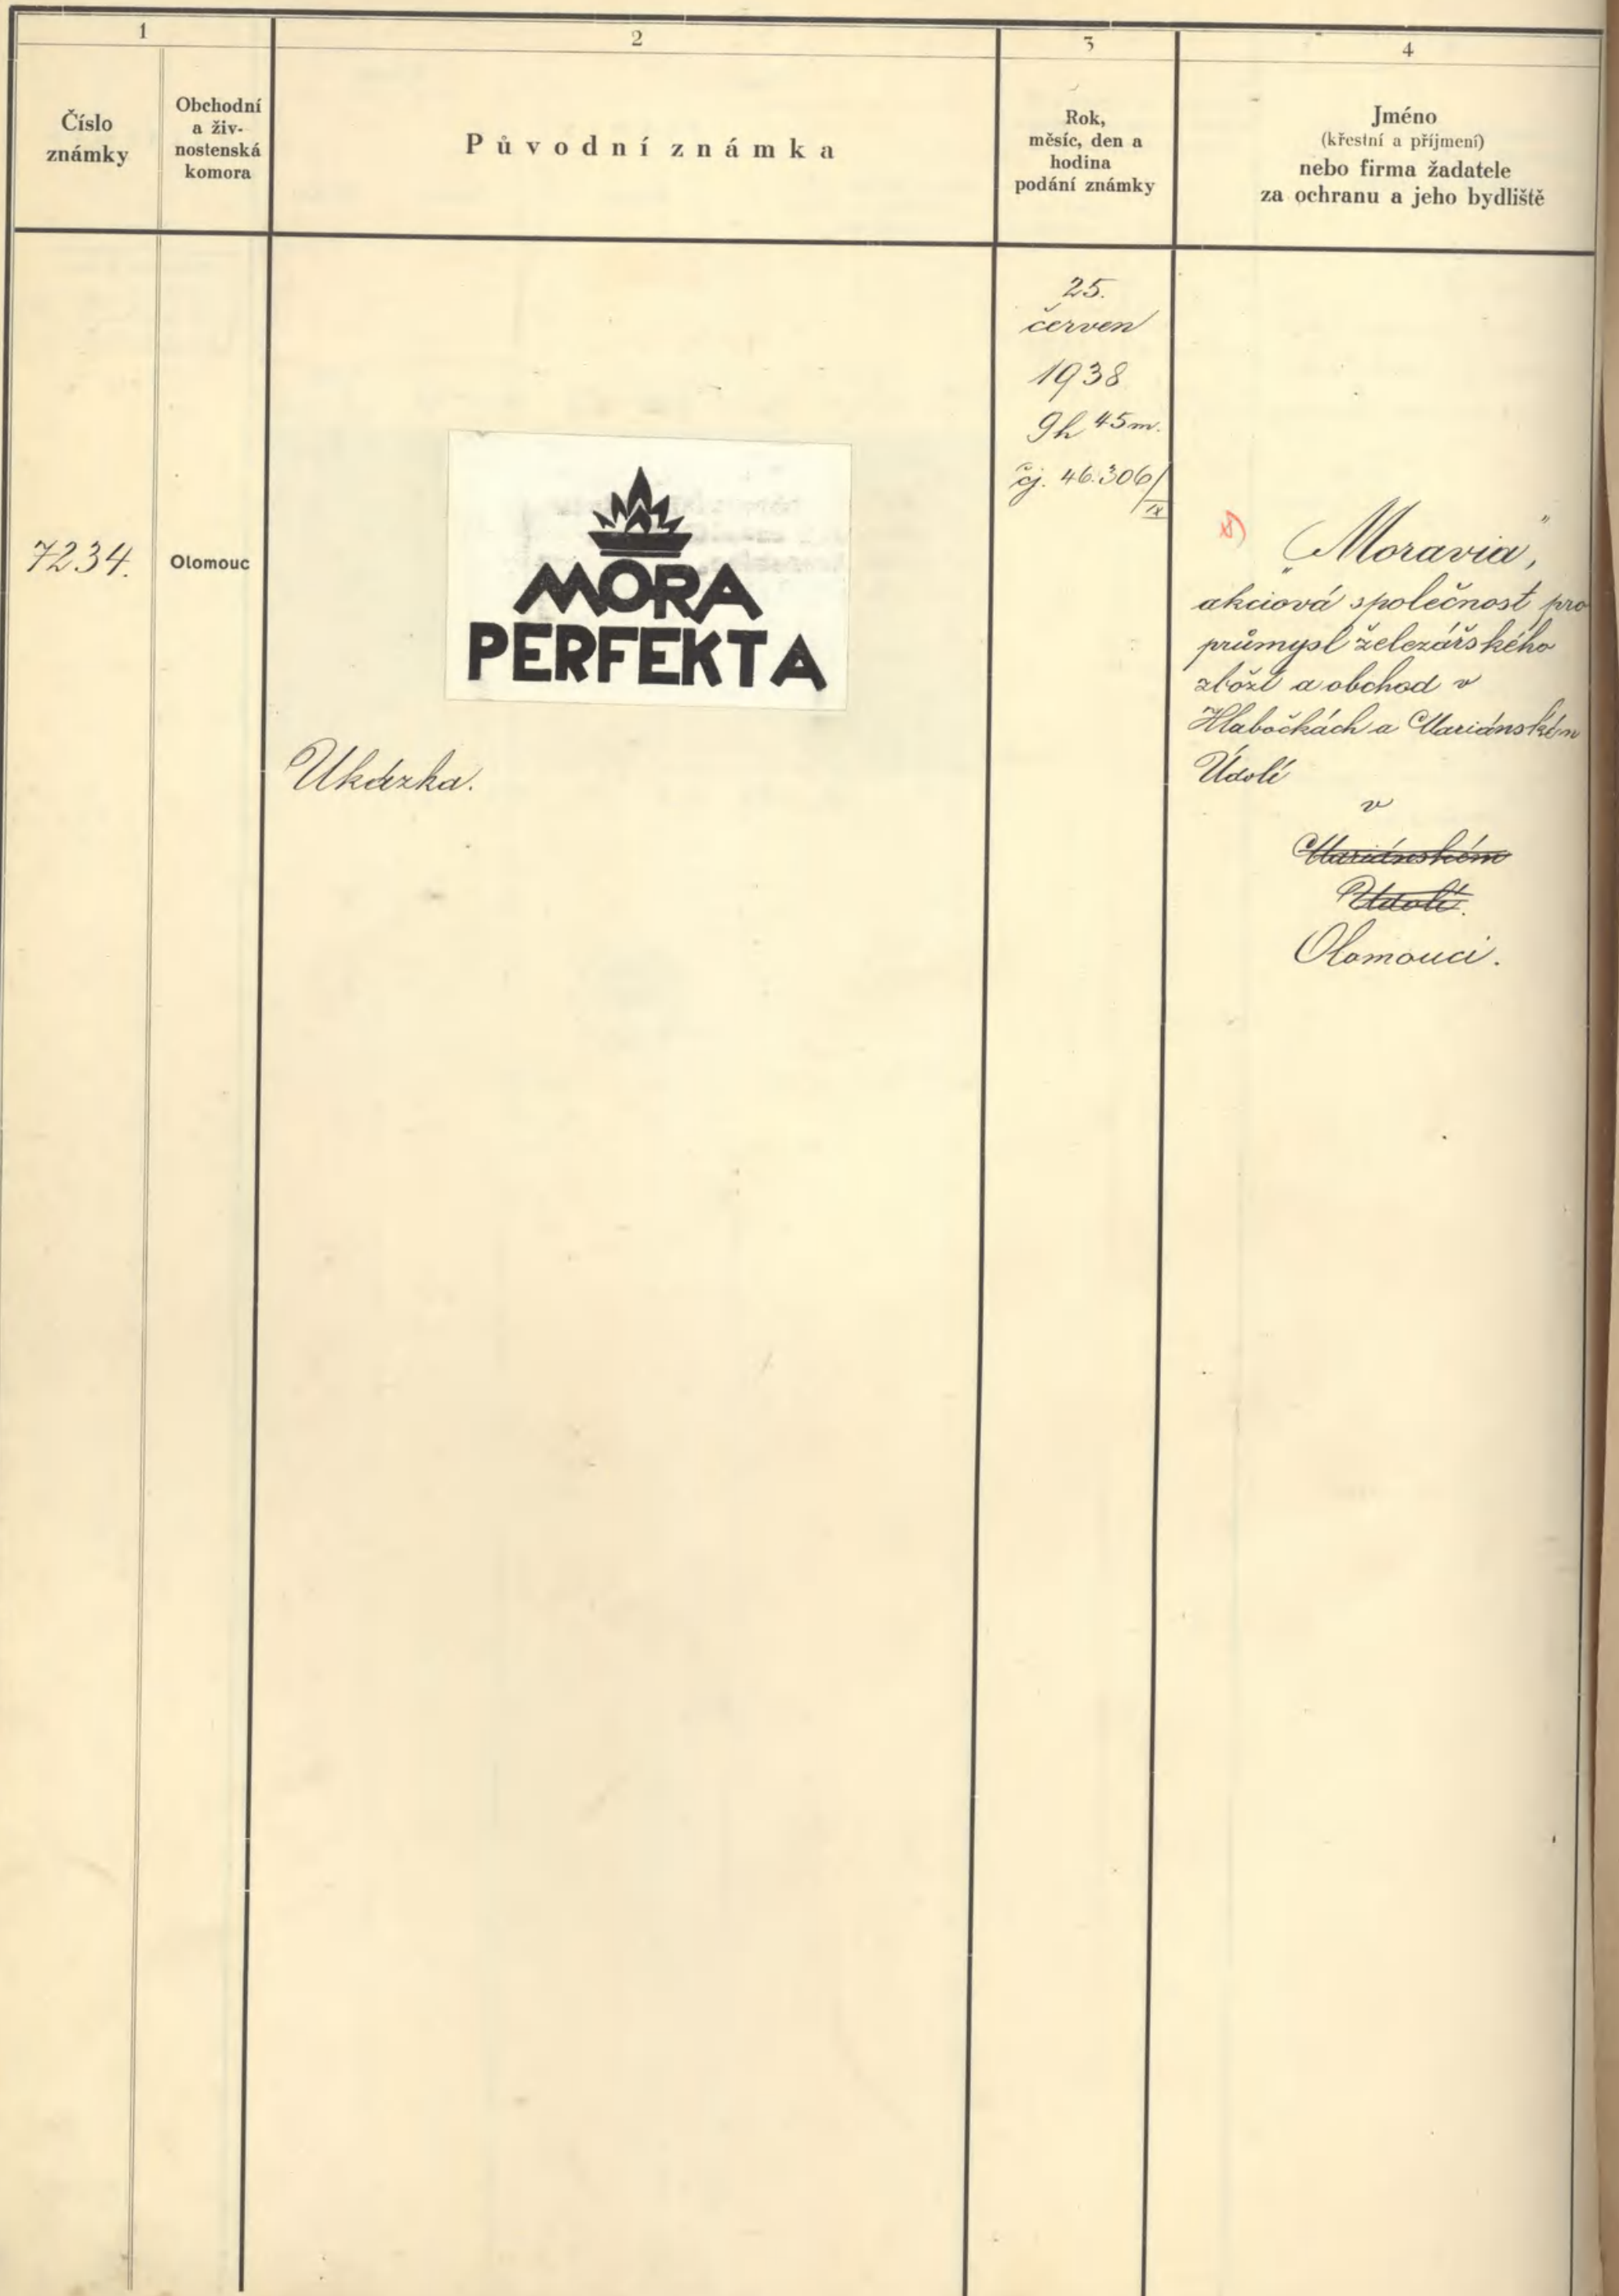 1
2
3
4
Číslo
známky
Obchodní
a živ-
nostenská
komora
Původní známka
Rok,
měsíc, den a
hodina
podání známky
Jméno
(křestní a příjmení)
nebo firma žadatele
za ochranu a jeho bydliště
7234.
Olomouc
MORA
PERFEKTA
Ukázka.
25.
červen
1938
9h 45m.
čj. 46.306/IX
„Moravia",
akciová společnost pro
průmysl železářského
zboží a obchod v
Hlubočkách a Mariánském
Údolí
v
Mariánském
Údolí.
Olomouci.